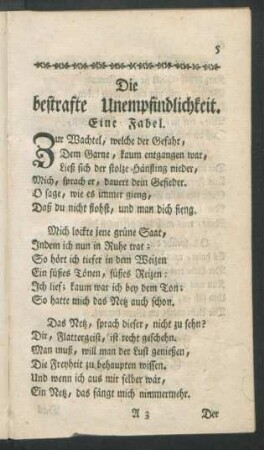 5
Die
bestrafte Unempfindlichkeit.
Eine Fabel.
Zur Wachtel, welche der Gefahr,
Dem Garne, kaum entgangen war,
Ließ sich der stolze Hänfling nieder,
Mich, sprach er, dauert dein Gefieder.
O sage, wie es immer gieng,
Daß du nicht flohst, und man dich fieng.
Mich lockte jene grüne Saat,
Indem ich nun in Ruhe trat:
So hört ich tiefer in dem Weizen
Ein süßes Tönen, süßes Reizen:
Ich lief; kaum war ich bey dem Ton:
So hatte mich das Netz auch schon.
Das Netz, sprach dieser, nicht zu sehn?
Dir, Flattergeist, ist recht geschehn.
Man muß, will man der Lust genießen,
Die Freyheit zu behaupten wissen.
Und wenn ich aus mir selber wär,
Ein Netz, das fängt mich nimmermehr.
A 3 Der